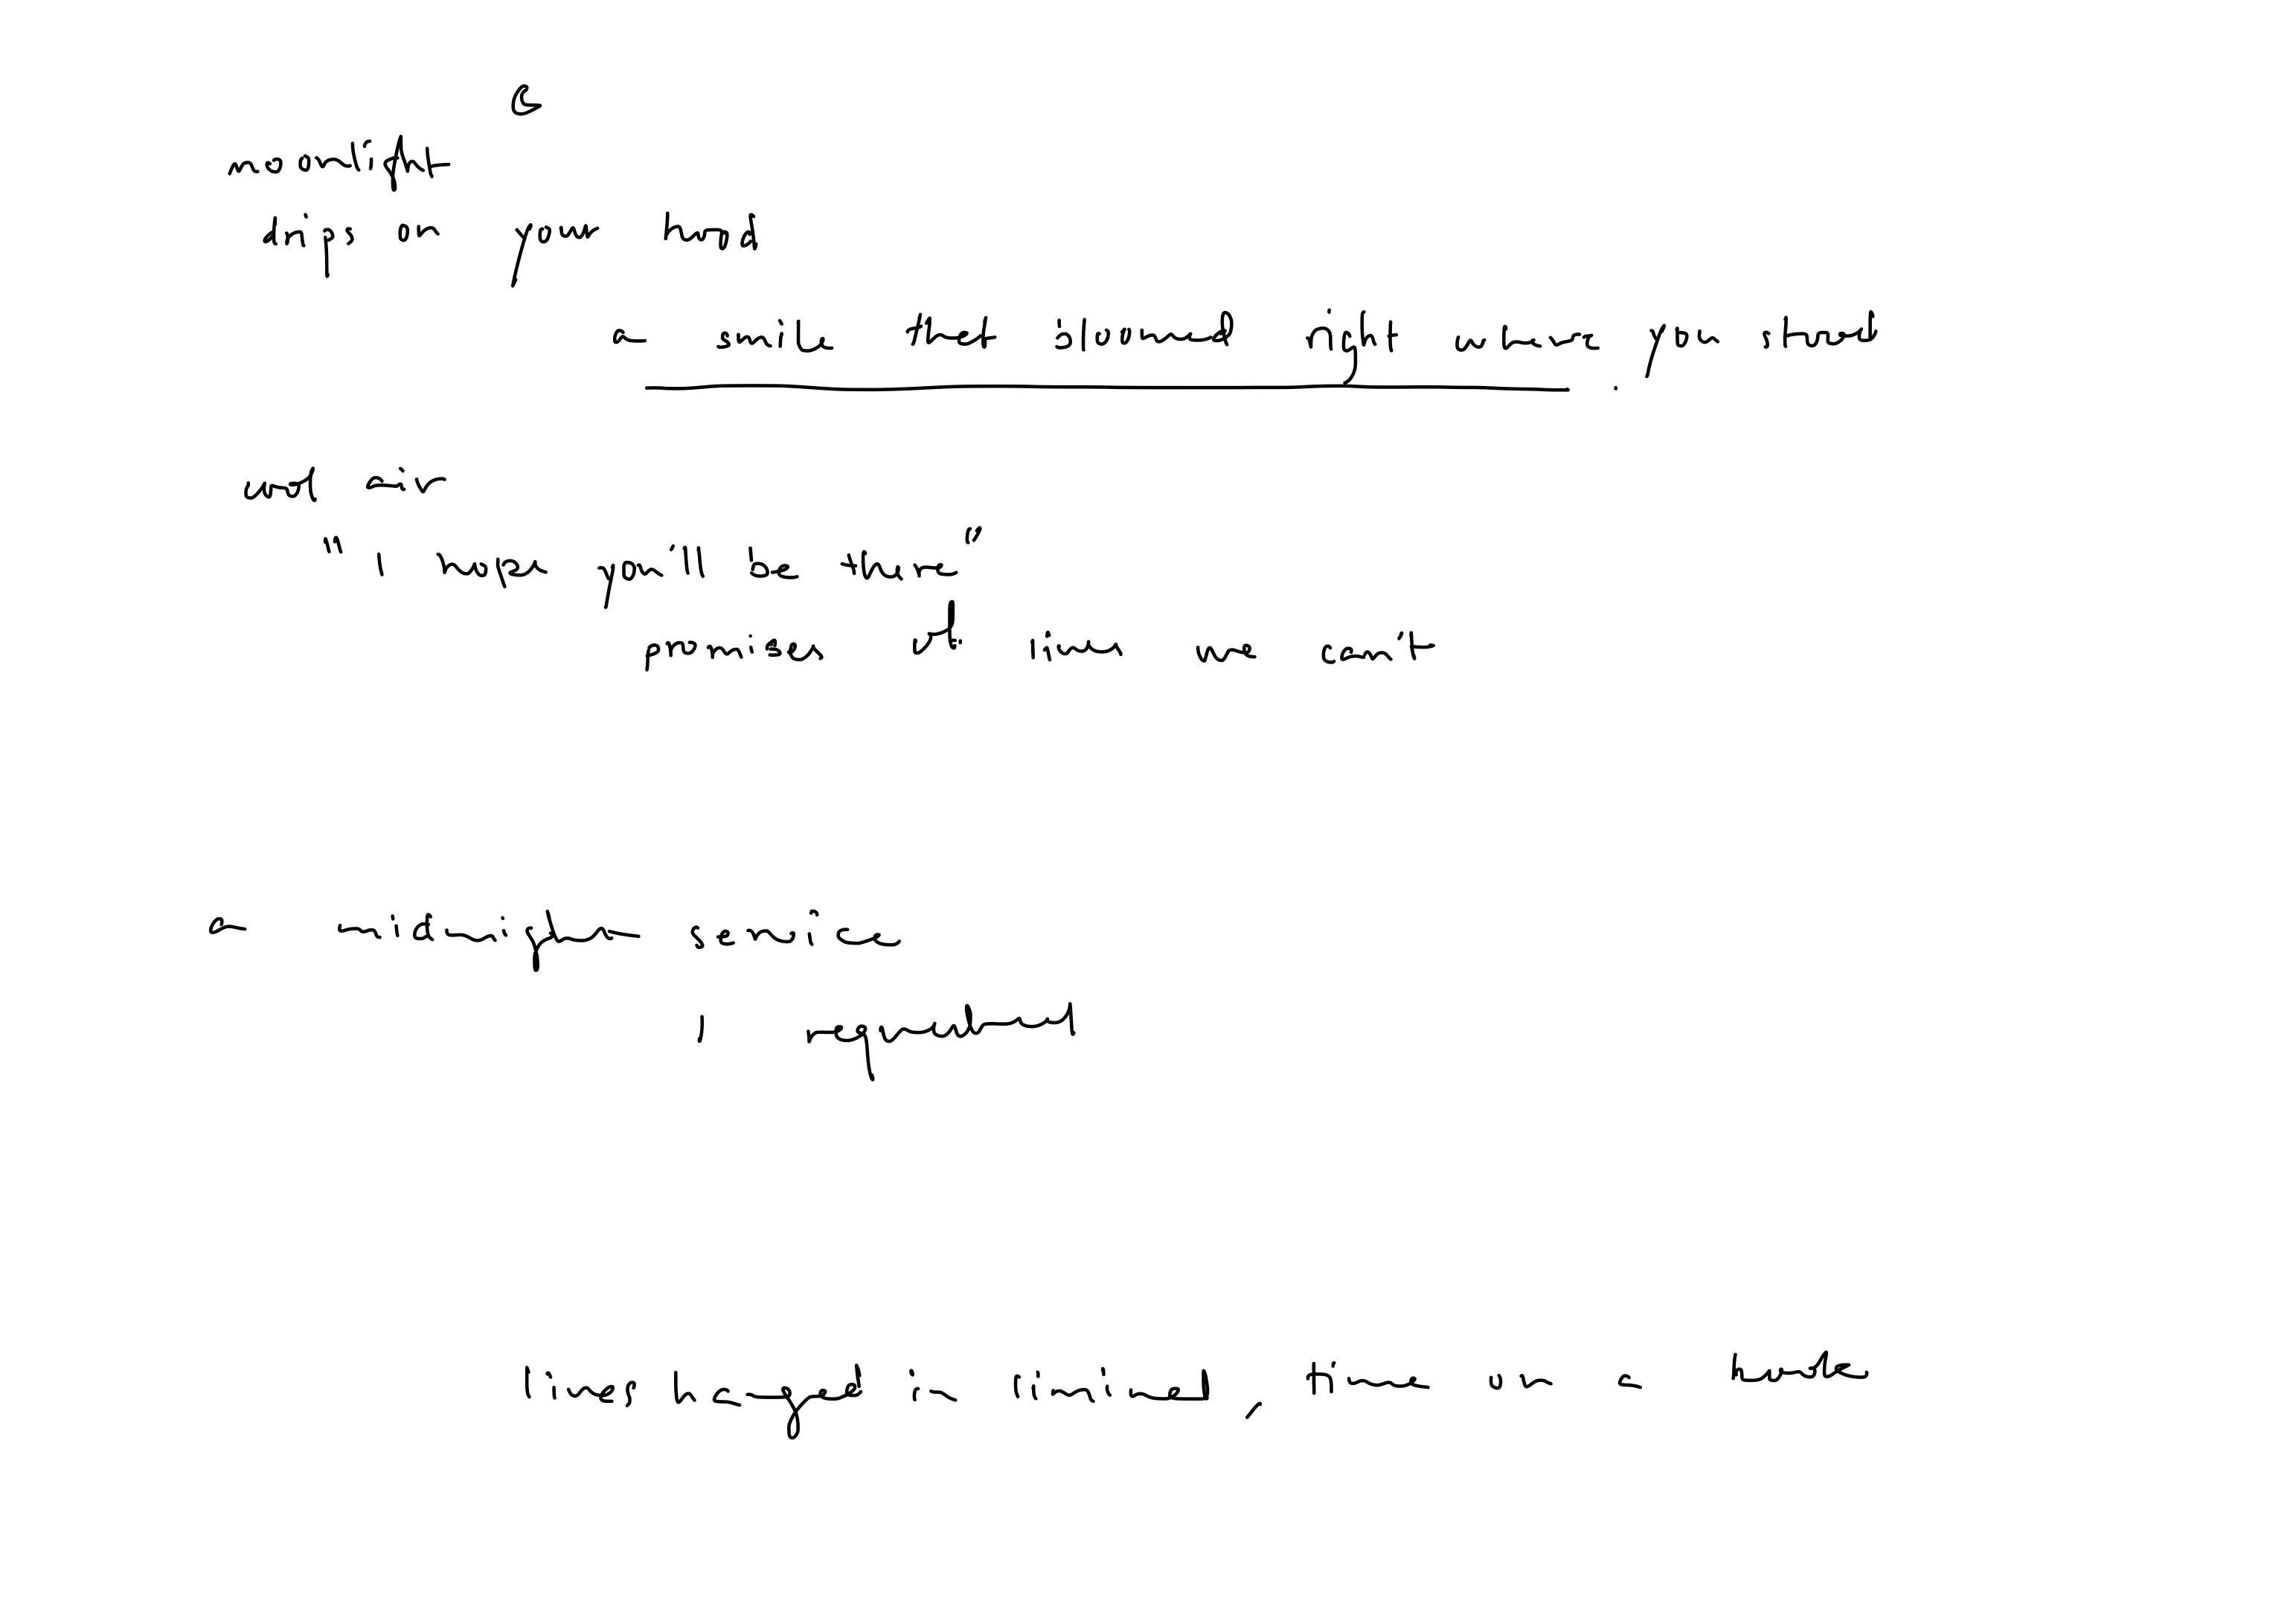 moonlight
drips on your hood
a smile that bloomed right where you stood
cool air
"I hope you'll be there"
promises of lives we can't
a midnight service
I requested
lives hanged in liminal, time on a